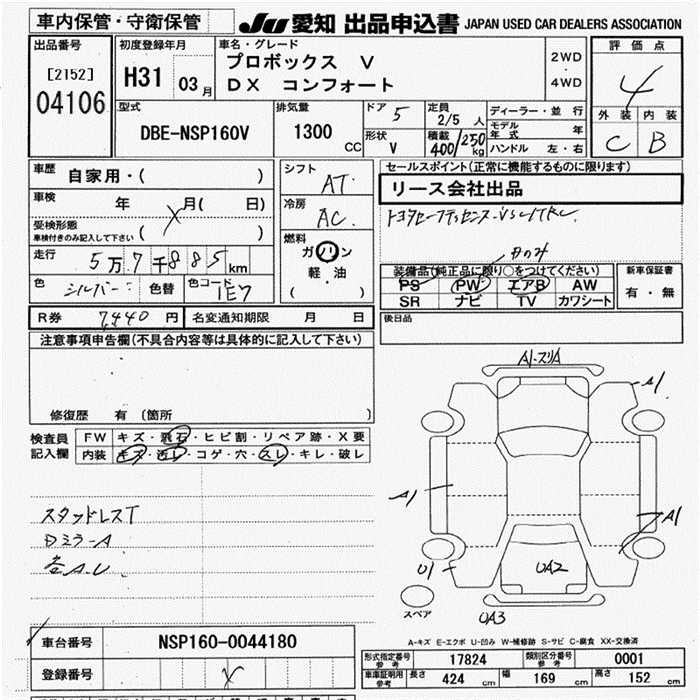 車内保管・守衛保管
JU 愛知 出品申込書 JAPAN USED CAR DEALERS ASSOCIATION
出品番号
[2152]
04106
初度登録年月
H31 03月
車名・グレード
プロボックス V
DX コンフォート
2WD
・
4WD
評価点
4
外装 内装
C B
型式
DBE-NSP160V
排気量
1300 CC
ドア 5
形状 V
定員
2/5 人
積載 400/250 kg
ディーラー・並行
モデル年式 年
ハンドル 左・右
車歴 自家用・( )
車検 年 月( 日)
受検形態
車検付きのみ記入して下さい ( )
走行 5万7千885km
色 シルバー 色替 色コード 1E7
シフト
AT
冷房
AC
燃料
ガソリン
軽・油
( )
セールスポイント(正常に機能するものに限ります)
リース会社出品
カのみ
装備品(純正品に限り○をつけてください)
PS PW エアB AW
SR ナビ TV カワシート
新車保証書
有・無
R券 7440 円 名変通知期限 月 日
後日品
注意事項申告欄(不具合内容等は具体的に記入して下さい)
修復歴 有(箇所 )
検査員
記入欄
FW キズ・飛石・ヒビ割・リペア跡・X要
内装 キズ・汚レ・コゲ・穴・スレ・キレ・破レ
スタッドレスT
Dミラ-A
各A.U
A1-スリA
A1
A1
A1
U1
UA2
UA3
スペア
A-キズ E-エクボ U-凹み W-補修跡 S-サビ C-腐食 XX-交換済
車台番号 NSP160-0044180
登録番号
形式指定番号 参考 17824 類別区分番号 参考 0001
車庫証明用 参考 長さ 424 cm 幅 169 cm 高さ 152 cm